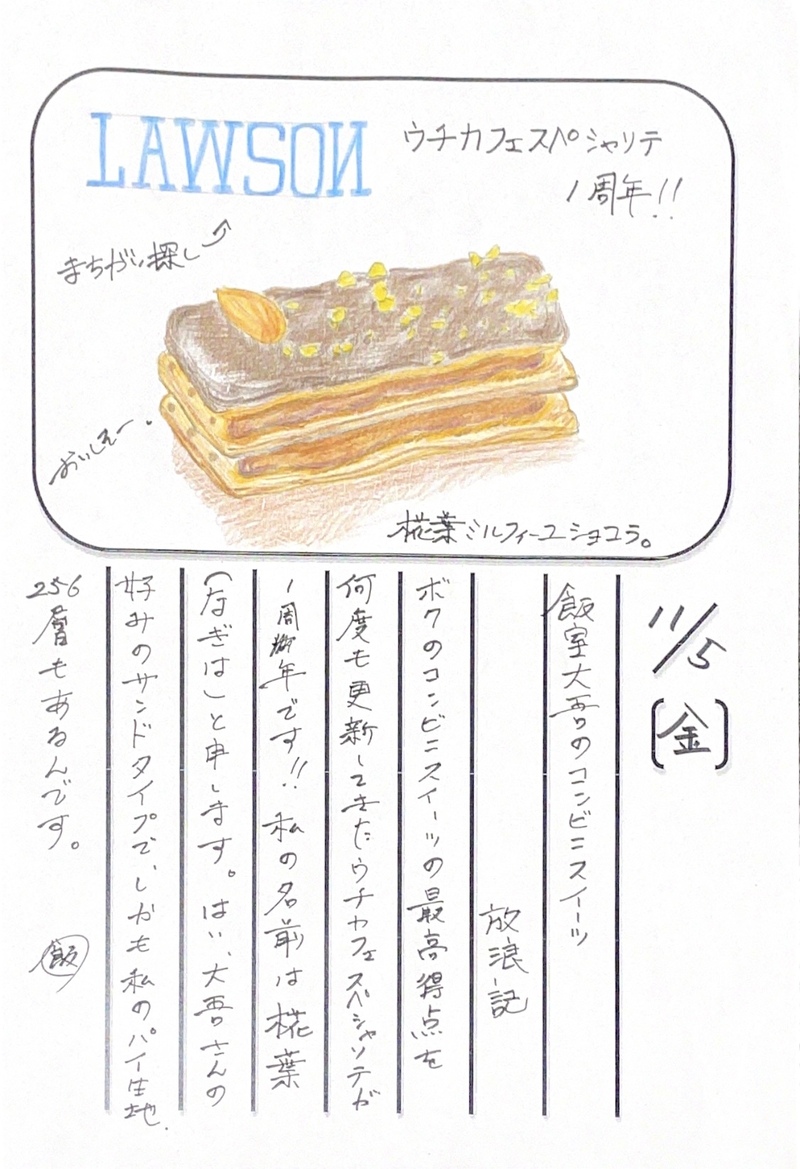 LAWSOИ
ウチカフェスペシャリテ
1周年!!
まちがい探し
おいしそー。
椛葉ミルフィーユショコラ。
11/5
[金]
飯室大吾のコンビニスイーツ
放浪記
ボクのコンビニスイーツの最高得点を
何度も更新してきたウチカフェスペシャリテが
1周年です!!私の名前は椛葉
(なぎは)と申します。はい、大吾さんの
好みのサンドタイプで、しかも私のパイ生地、
256層もあるんです。
飯